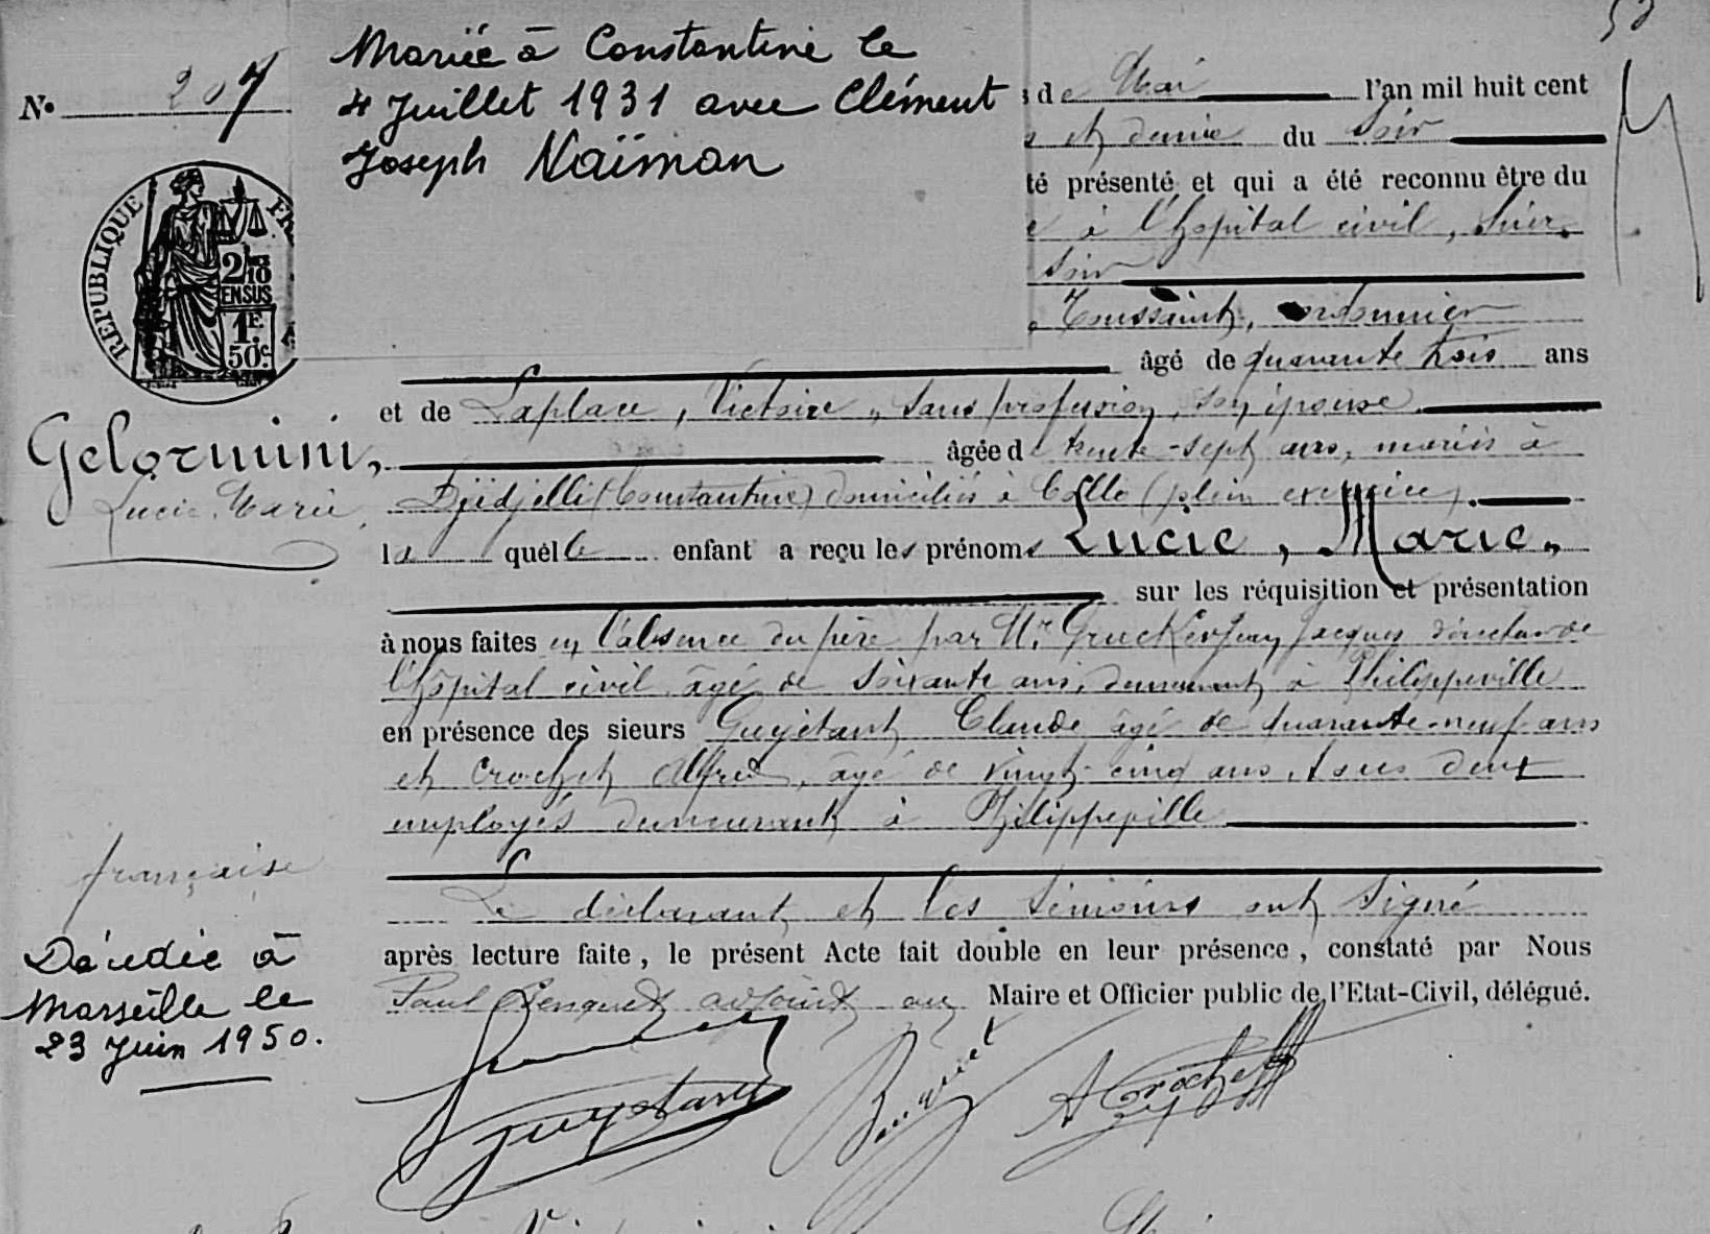 Mariée à Constantine le
4 Juillet 1931 avec Clément
Joseph Naïman
N° 207
de Mai l'an mil huit cent
et demie du soir
té présenté et qui a été reconnu être du
e à l'hôpital civil,
soir
Toussaint, cordonnier
âgé de quarante trois ans
et de Laplace, Victoire, sans profession, son épouse
âgée de trente-sept ans, mariés à
Djidjelli (Constantine) domiciliés à Collo (plein exercice).
la quelle enfant a reçu les prénoms Lucie, Marie,
sur les réquisition et présentation
à nous faites en l'absence du père par Mr Grucker Jean Jacques directeur de
l'hôpital civil âgé de soixante ans, demeurant à Philippeville
en présence des sieurs Guyétant Claude âgé de quarante-neuf ans
et Crochet Alfred, âgé de vingt-cinq ans, tous deux
employés demeurant à Philippeville
Le déclarant et les témoins ont signé
après lecture faite, le présent Acte fait double en leur présence, constaté par Nous
Paul adjoint au Maire et Officier public de l'Etat-Civil, délégué.
Guyetant
A Crochet
RÉPUBLIQUE FR
2/10
EN SUS
1F
50c
Gelormini,
Lucie Marie
française
Décédée à
Marseille le
23 Juin 1950.